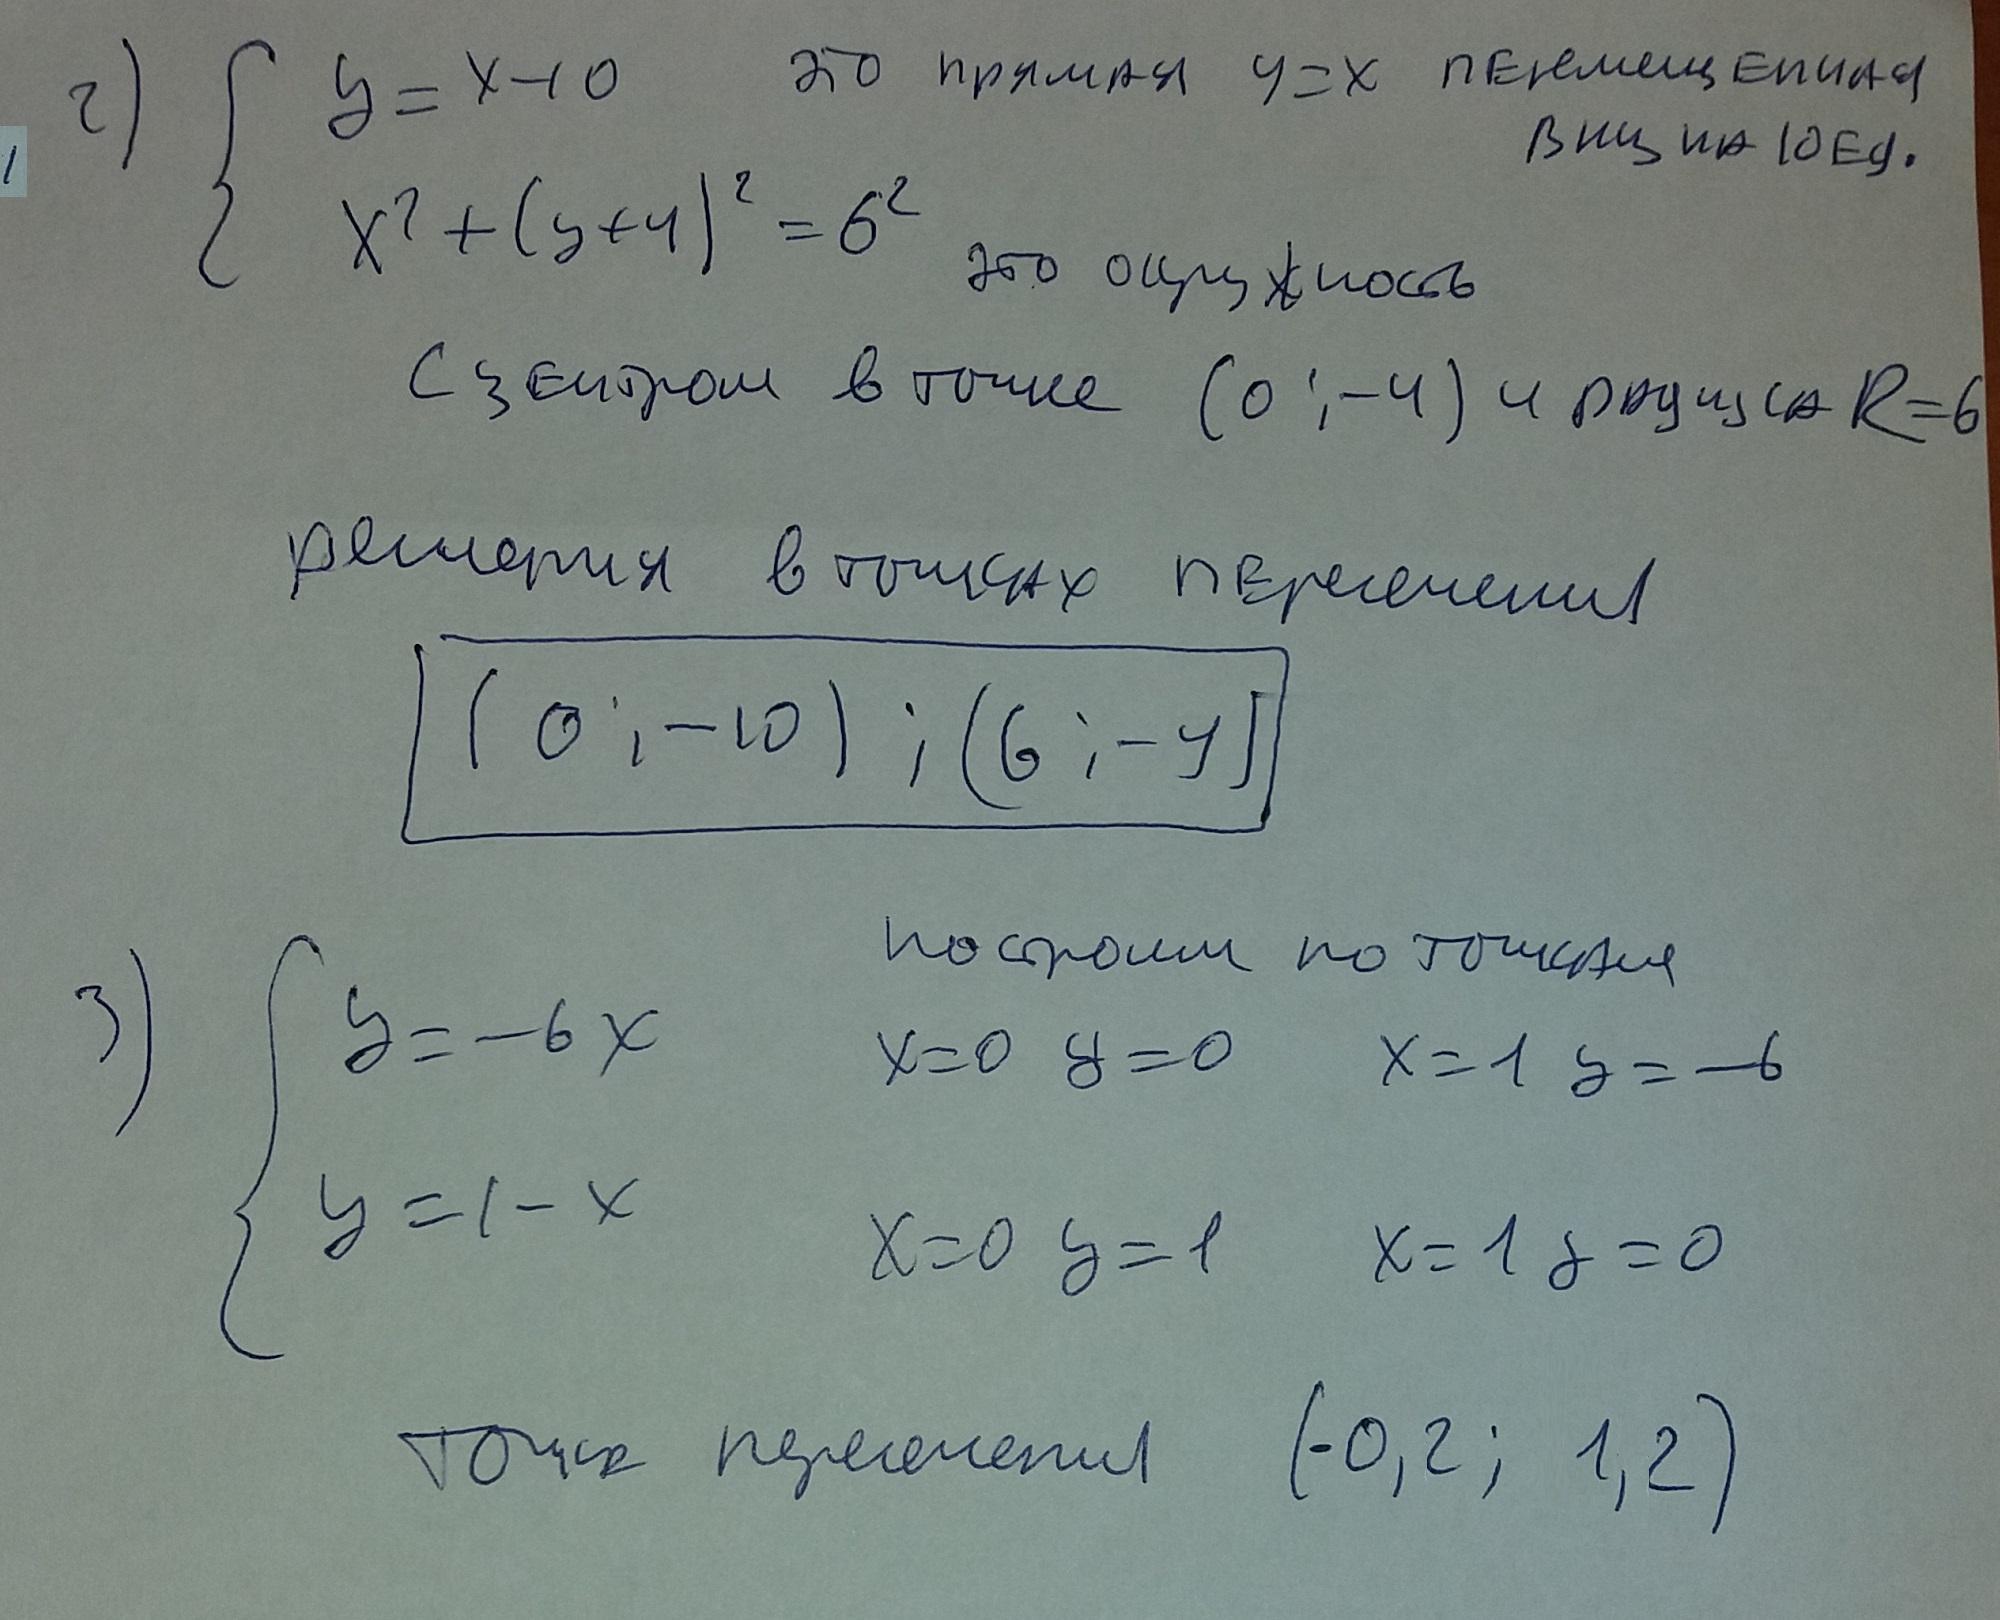 2) { y = x-10 это прямая y=x перемещенная
вниз на 10 ед.
x² + (y+4)² = 6² это окружность
с центром в точке (0;-4) и радиуса R=6
решения в точках пересечения
(0;-10); (6;-4)
построим по точкам
3) { y = -6x x=0 y=0 x=1 y=-6
y = 1-x x=0 y=1 x=1 y=0
точка пересечения (-0,2; 1,2)